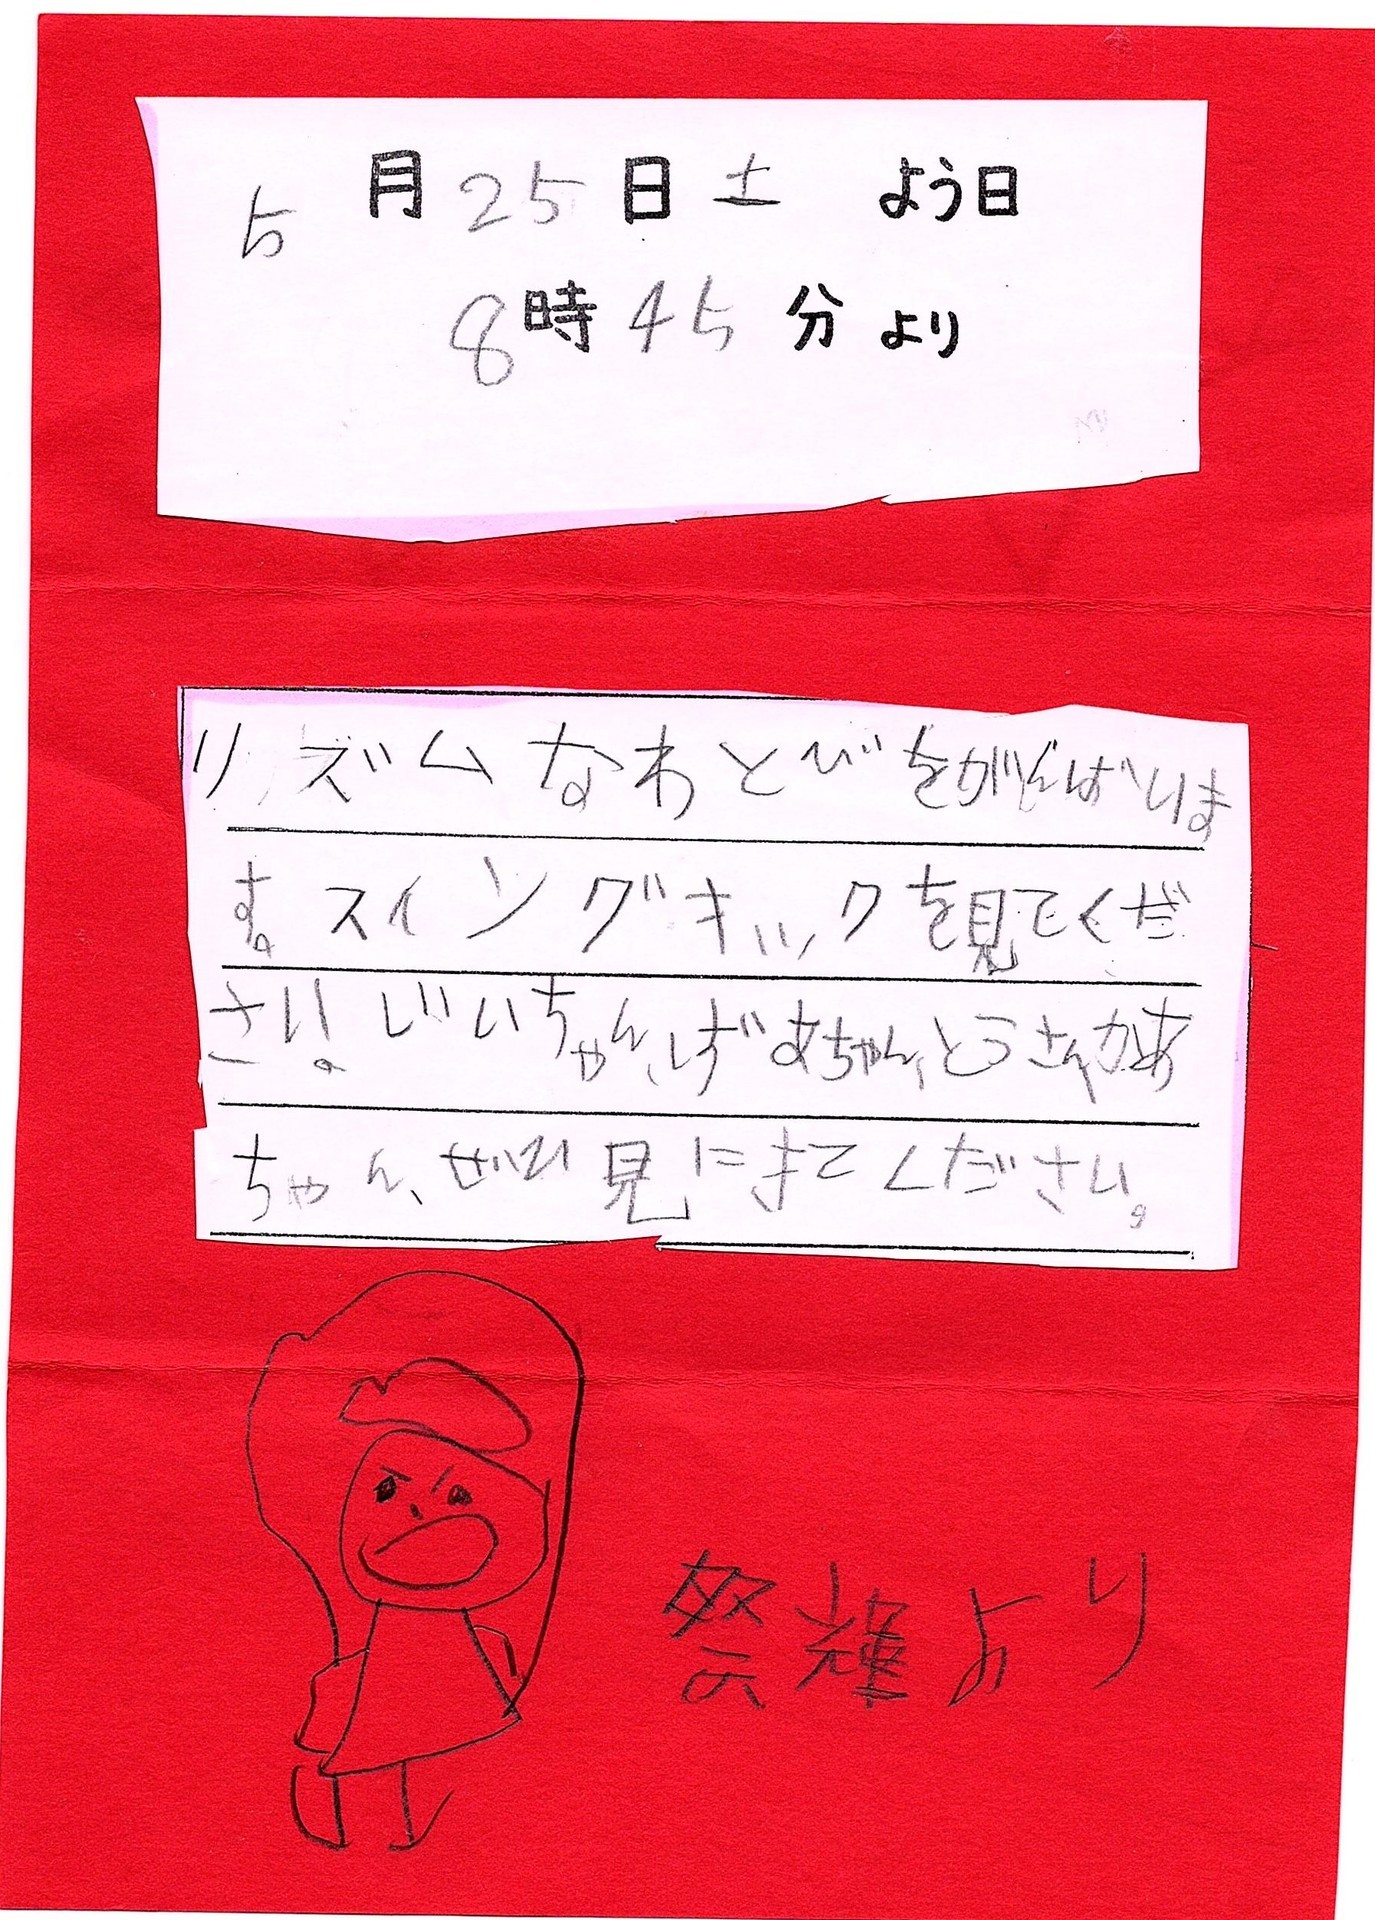 5月25日土よう日
8時45分より
リズムなわとびをがんばりま
す。スイングキックを見てくだ
さい。じいちゃん、ばあちゃん、とうさん、かあ
ちゃん、ぜひ見にきてください。
祭輝より